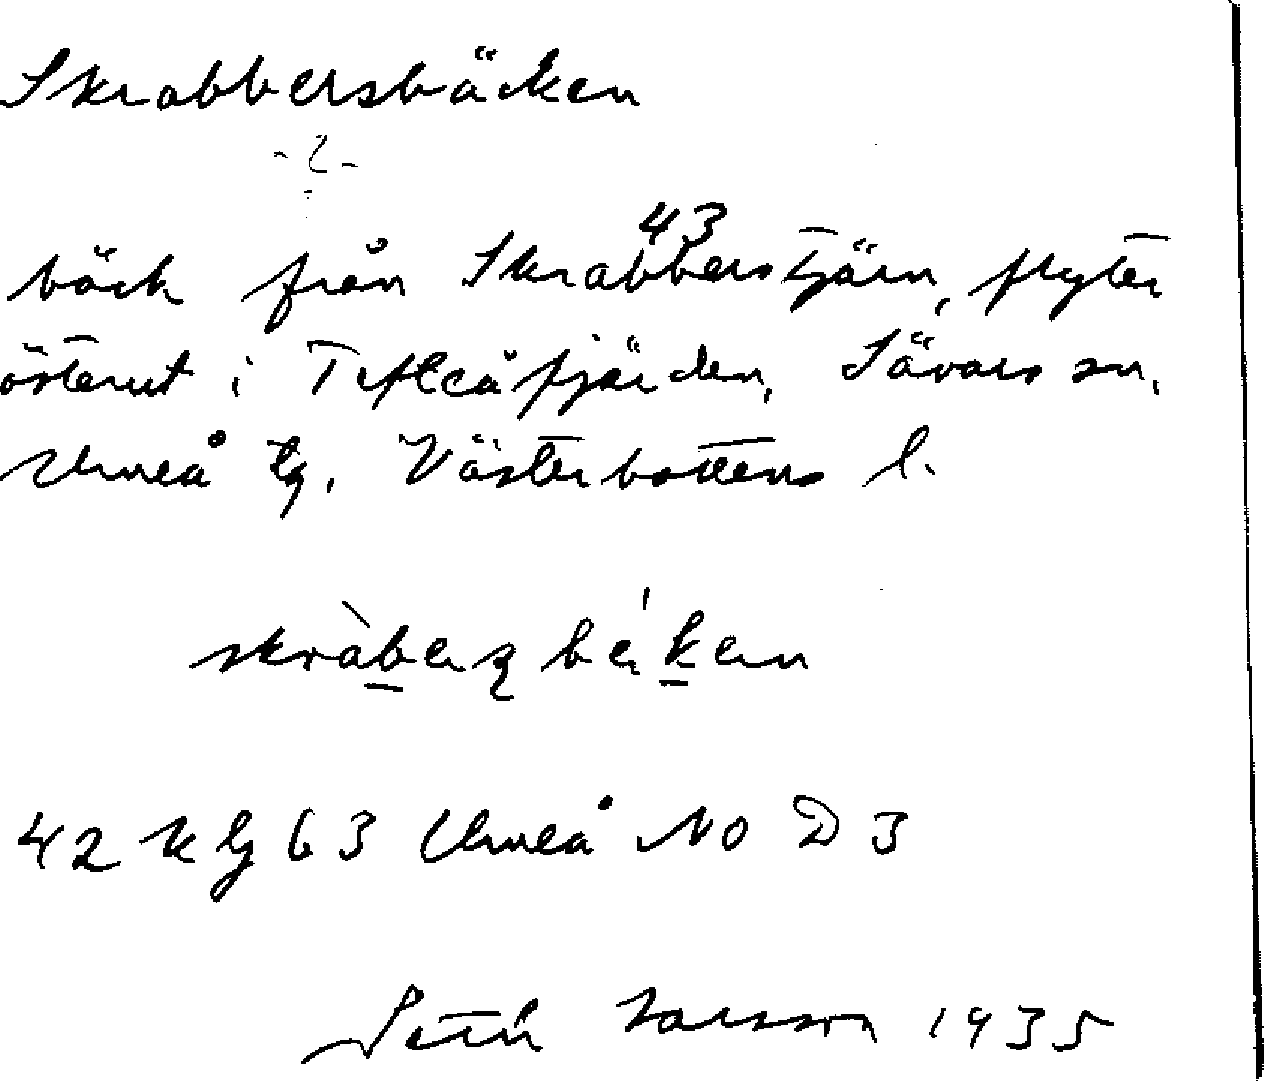 Skrabbersbäcken
-?-
43
bäck från Skrabberstjärn, flyter
österut i Tefteåfjärden, Sävars sn,
Umeå tg, Västerbottens l.
42 K lg 63 Umeå NO D 3
Seth Larsson 1935